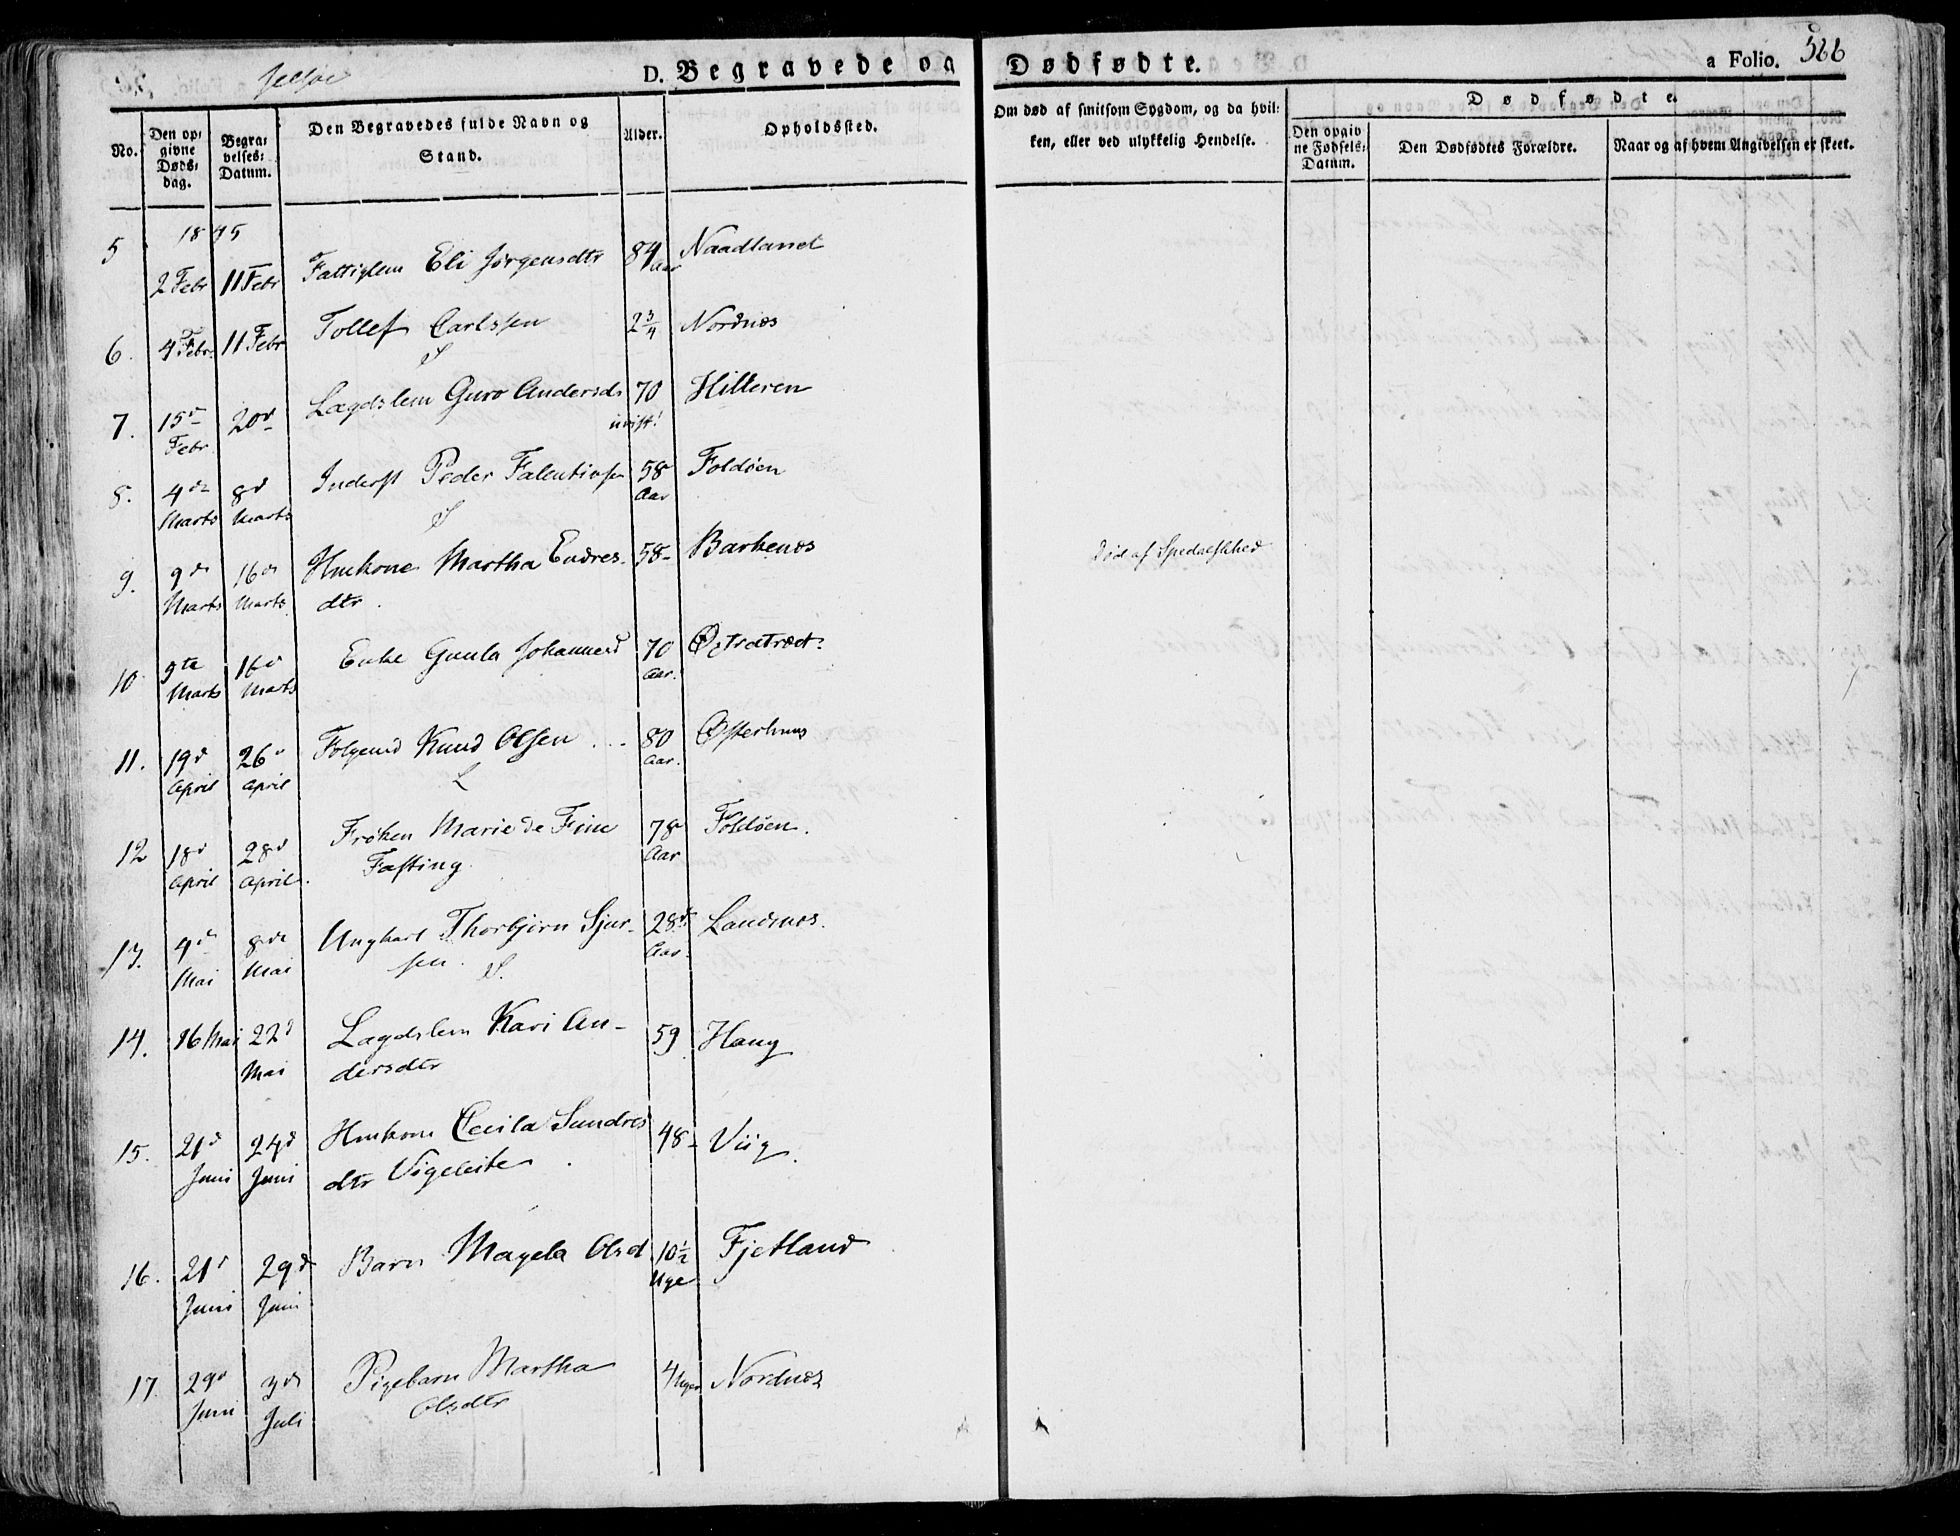 Jelsøe
D. Begravede og Dødfødte. a Folio. 566
No.
Den op-
givne
Døds-
dag.
Begra-
velses-
Datum.
Den Begravedes fulde Navn og
Stand.
Alder.
Opholdssted.
Om død af smitsom Sygdom, og da hvil-
ken, eller ved ulykkelig Hendelse.
Dødfødte.
Den opgiv
ne Fødsels-
Datum.
Den Dødfødtes Forældre.
Naar og af hvem Angivelsen er skeet.
1845
5 2 Febr 11 Febr Fattiglem Eli Jørgensdtr 84 Aar Naadland
6. 4 Febr. 11 Febr Tollef Carlssen 2 3/4 Nordnæs
7. 15de Febr 20de Lægdslem Guro Andersd 70 Hilleren
8. 4de Marts 8d Marts Inderst Peder Falentinsen 58 Aar Foldøen
9. 9de Marts 16de Marts Huskone Martha Endres- 58- Barkenæs Død af Spedalskhed
dtr.
10 9te Marts 16d Marts Enke Gunla Johannesd 70 Aar.
11. 19d April 26d April Følgemd Knud Olsen 80 Aar. Østerhuus
12 18d April 28d April. Frøken Marie de Fine 78 Aar Foldøen.
Fasting.
13. 4de Mai 8de Mai Ungkarl Thorbjørn Sjur- 28d Aar. Landsnæs.
sen.
14. 16 Mai 22d Mai Lægdslem Kari An- 59 Haug
dersdtr
15. 21d Juni 24d Juni Huskone Cecila Sundres 48- Viig.
dtr Vigeleite
16. 21d Juni 29d Juni Barn Magela Olsd 10 1/2 Uge Fjetland
17. 29d Juni 3de Juli Pigebarn Martha 4 Uger Nordnæs
Olsdtr